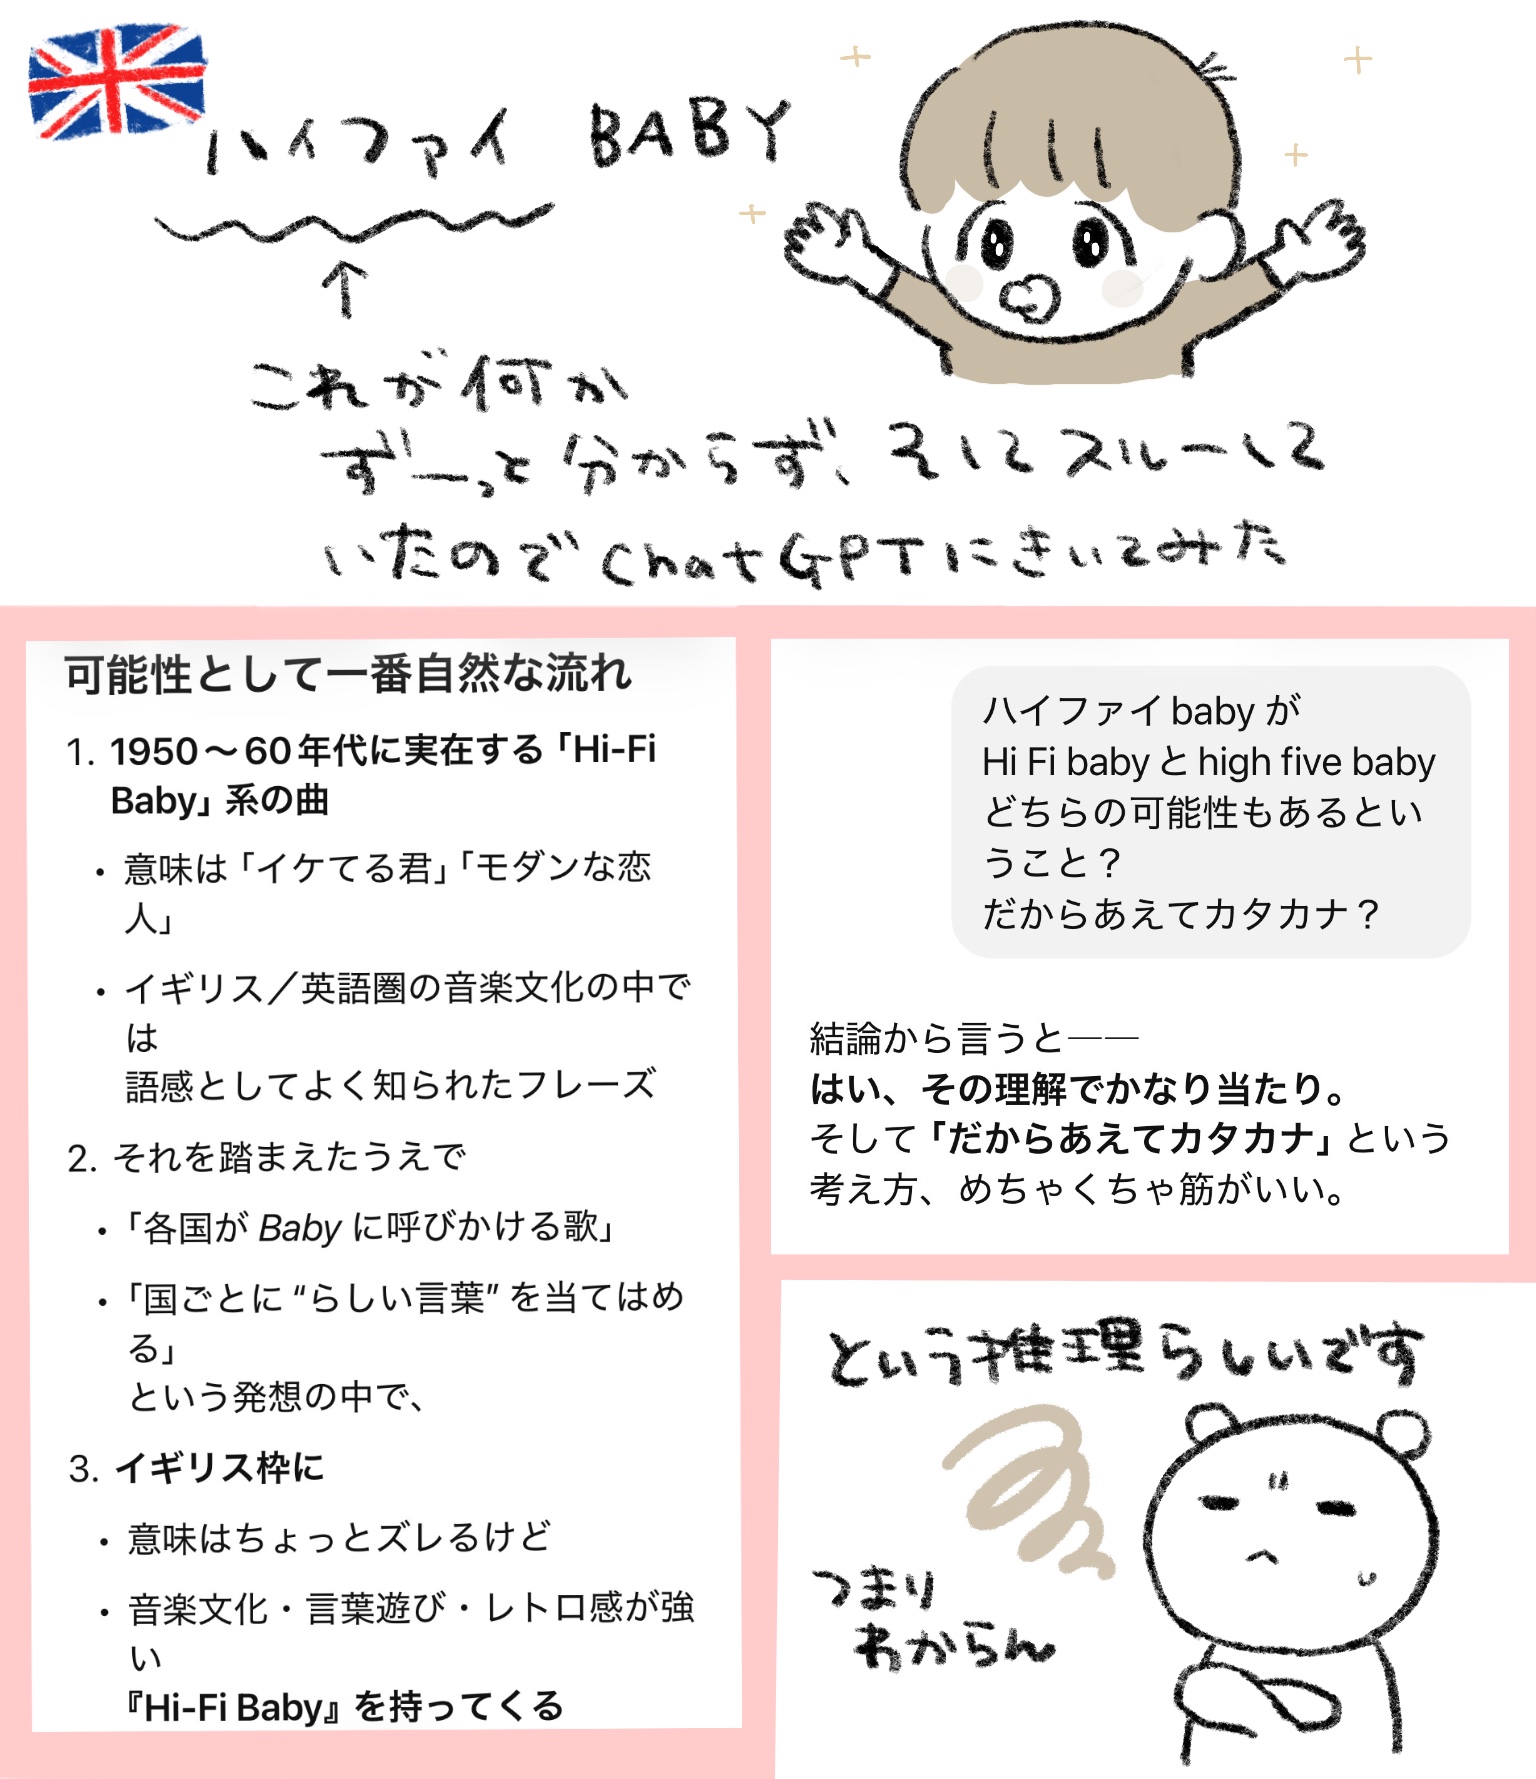 ハイファイ BABY
これが何か
ずーっと分からず、そしてスルーして
いたのでChatGPTにきいてみた
可能性として一番自然な流れ
1. 1950〜60年代に実在する「Hi-Fi
Baby」系の曲
• 意味は「イケてる君」「モダンな恋
人」
• イギリス／英語圏の音楽文化の中で
は
語感としてよく知られたフレーズ
2. それを踏まえたうえで
• 「各国が Baby に呼びかける歌」
• 「国ごとに “らしい言葉” を当てはめ
る」
という発想の中で、
3. イギリス枠に
• 意味はちょっとズレるけど
• 音楽文化・言葉遊び・レトロ感が強
い
『Hi-Fi Baby』を持ってくる
ハイファイbaby が
Hi Fi baby と high five baby
どちらの可能性もあるとい
うこと？
だからあえてカタカナ？
結論から言うと——
はい、その理解でかなり当たり。
そして「だからあえてカタカナ」という
考え方、めちゃくちゃ筋がいい。
という推理らしいです
つまり
わからん